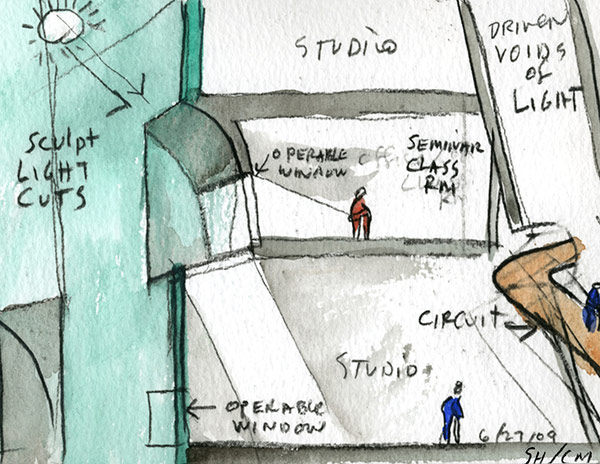 STUDIO
DRIVEN
VOIDS
OF
LIGHT
Sculpt
LIGHT
CUTS
OPERABLE
WINDOW
SEMINAR
CLASS
RM
CIRCUIT
STUDIO
OPERABLE
WINDOW
6/27/09
SH/CM